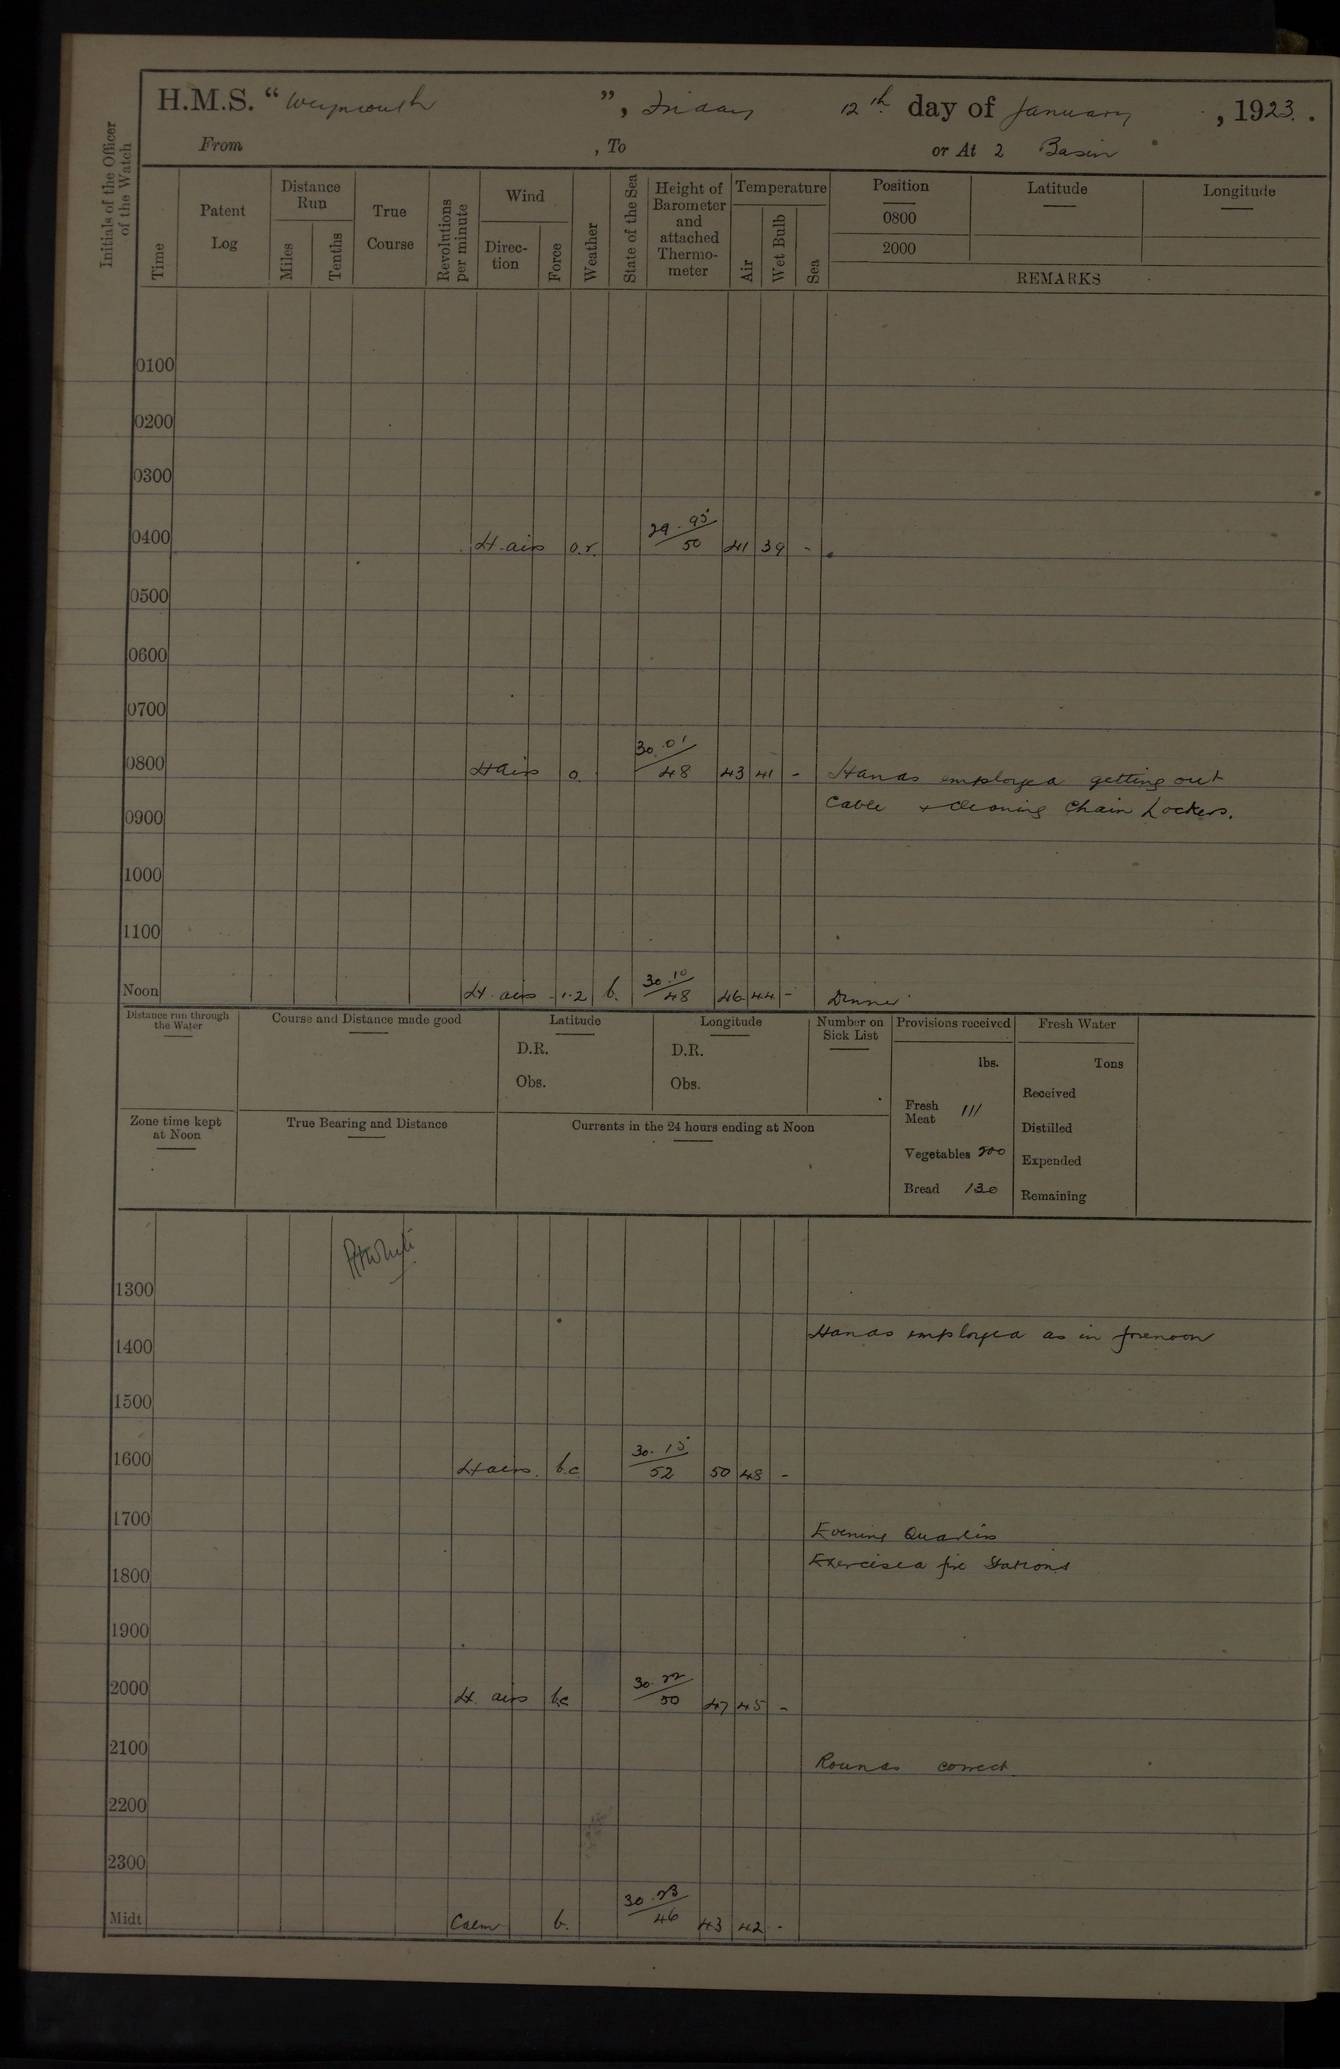 H.M.S. "Weymouth", Friday 12th day of January, 1923.
From , To or At 2 Basin
Initials of the Officer of the Watch
Time
Patent Log
Distance Run
Miles
Tenths
True Course
Revolutions per minute
Wind
Direc-tion
Force
Weather
State of the Sea
Height of Barometer and attached Thermo-meter
Temperature
Air
Wet Bulb
Sea
Position
0800
2000
Latitude
Longitude
REMARKS
0100
0200
0300
0400 Lt. airs o.r. 29.95/50 41 39 -
0500
0600
0700
0800 Lt airs o. 30.01/48 43 41 - Hands employed getting out
Cable + cleaning Chain Lockers.
0900
1000
1100
Noon Lt. airs 1.2 b. 30.10/48 46 44 - Dinner
Distance run through the Water
Course and Distance made good
Latitude
D.R.
Obs.
Longitude
D.R.
Obs.
Number on Sick List
Provisions received
lbs.
Fresh Meat 111
Vegetables 200
Bread 130
Fresh Water
Tons
Received
Distilled
Expended
Remaining
Zone time kept at Noon
True Bearing and Distance
Currents in the 24 hours ending at Noon
1300
Hands employed as in forenoon
1400
1500
1600 Lt airs. b.c 30.15/52 50 48 -
1700
Evening Quarters
Exercised fire Stations
1800
1900
2000 Lt. airs bc 30.22/50 47 45 -
2100
Rounds correct.
2200
2300
Midt Calm b. 30.23/46 43 42 -